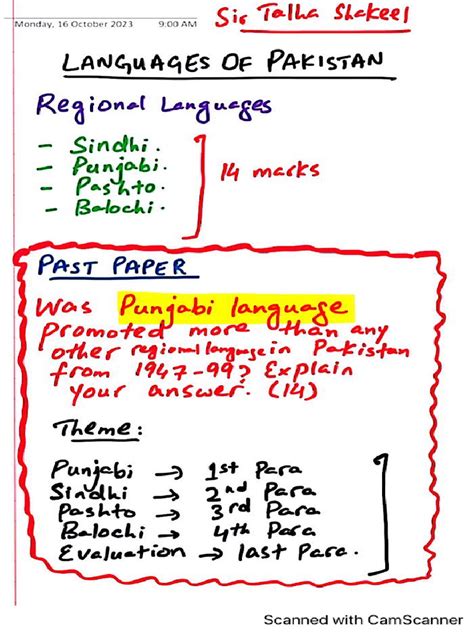 Sir Talha Shakeel
Monday, 16 October 2023 9:00 AM
LANGUAGES OF PAKISTAN
Regional Languages
- Sindhi.
- Punjabi.
- Pashto.
- Balochi.
14 marks
PAST PAPER
Was Punjabi language
promoted more than any
other regional language in Pakistan
from 1947-99? Explain
your answer. (14)
Theme:
Punjabi → 1st Para
Sindhi → 2nd Para
Pashto → 3rd Para
Balochi → 4th Para
Evaluation → last Para.
Scanned with CamScanner